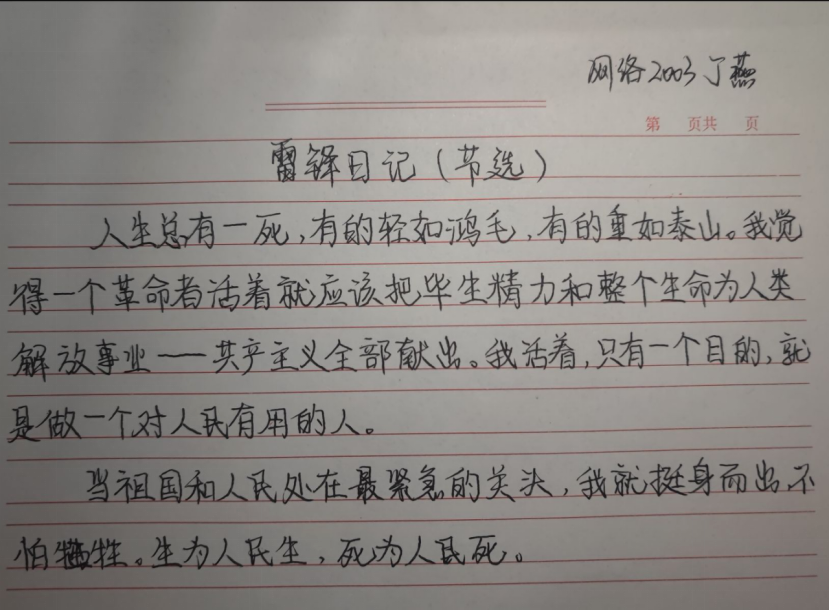 网络2003 丁燕
第 页共 页
雷锋日记(节选)
人生总有一死,有的轻如鸿毛,有的重如泰山。我觉
得一个革命者活着就应该把毕生精力和整个生命为人类
解放事业——共产主义全部献出。我活着,只有一个目的,就
是做一个对人民有用的人。
当祖国和人民处在最紧急的关头,我就挺身而出,不
怕牺牲。生为人民生,死为人民死。